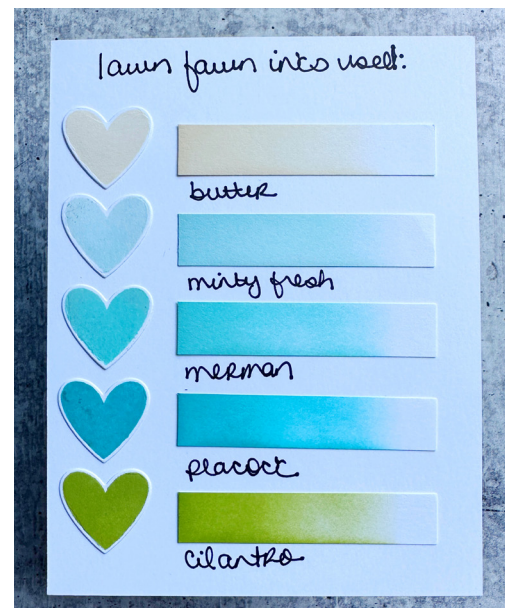 lawn fawn inks used:
butter
minty fresh
merman
peacock
cilantro